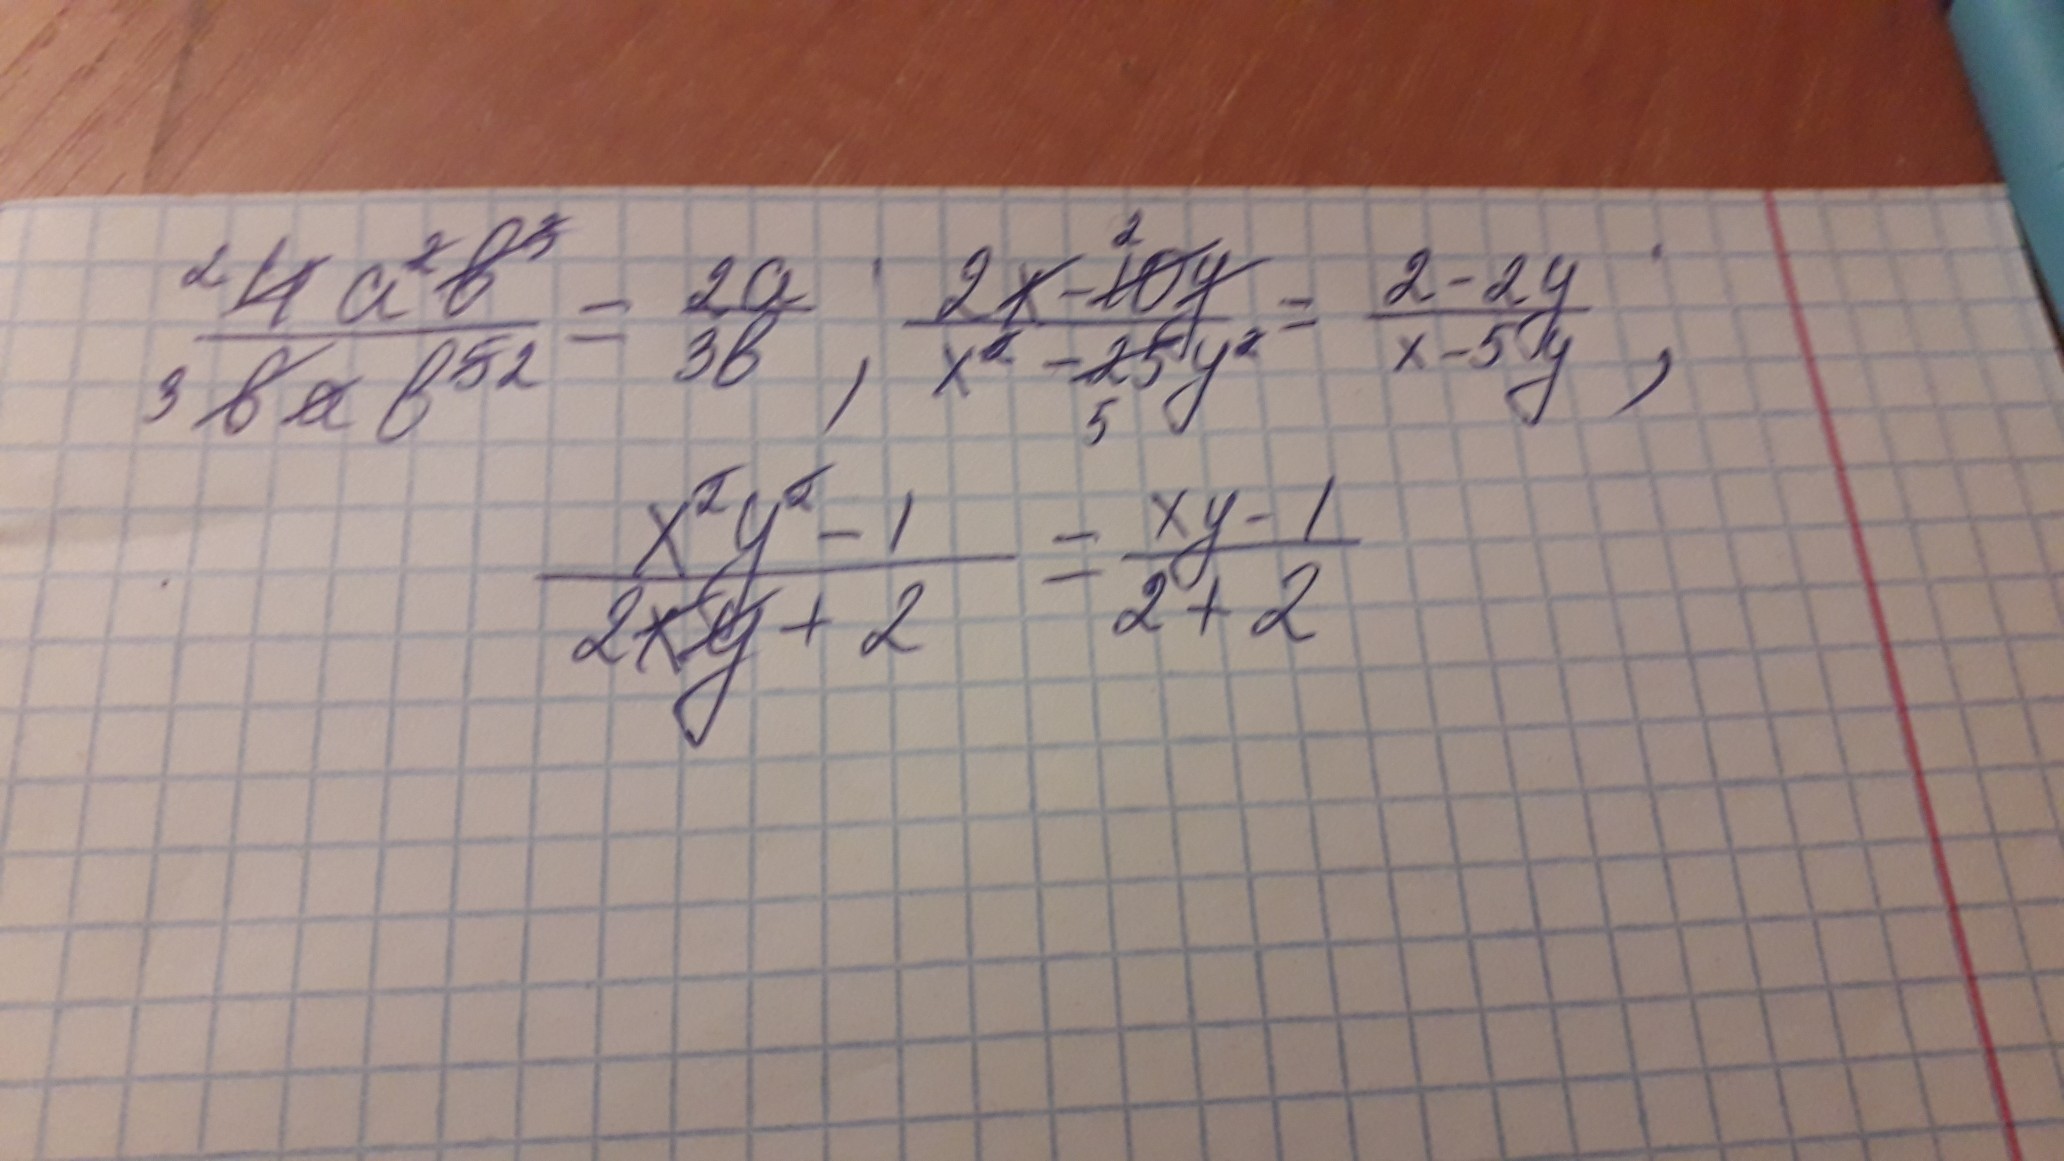 4a²b³/6ab⁵ = 2a/3b ; 2x-10y/x²-25y² = 2-2y/x-5y ;
x²y²-1/2xy+2 = xy-1/2+2